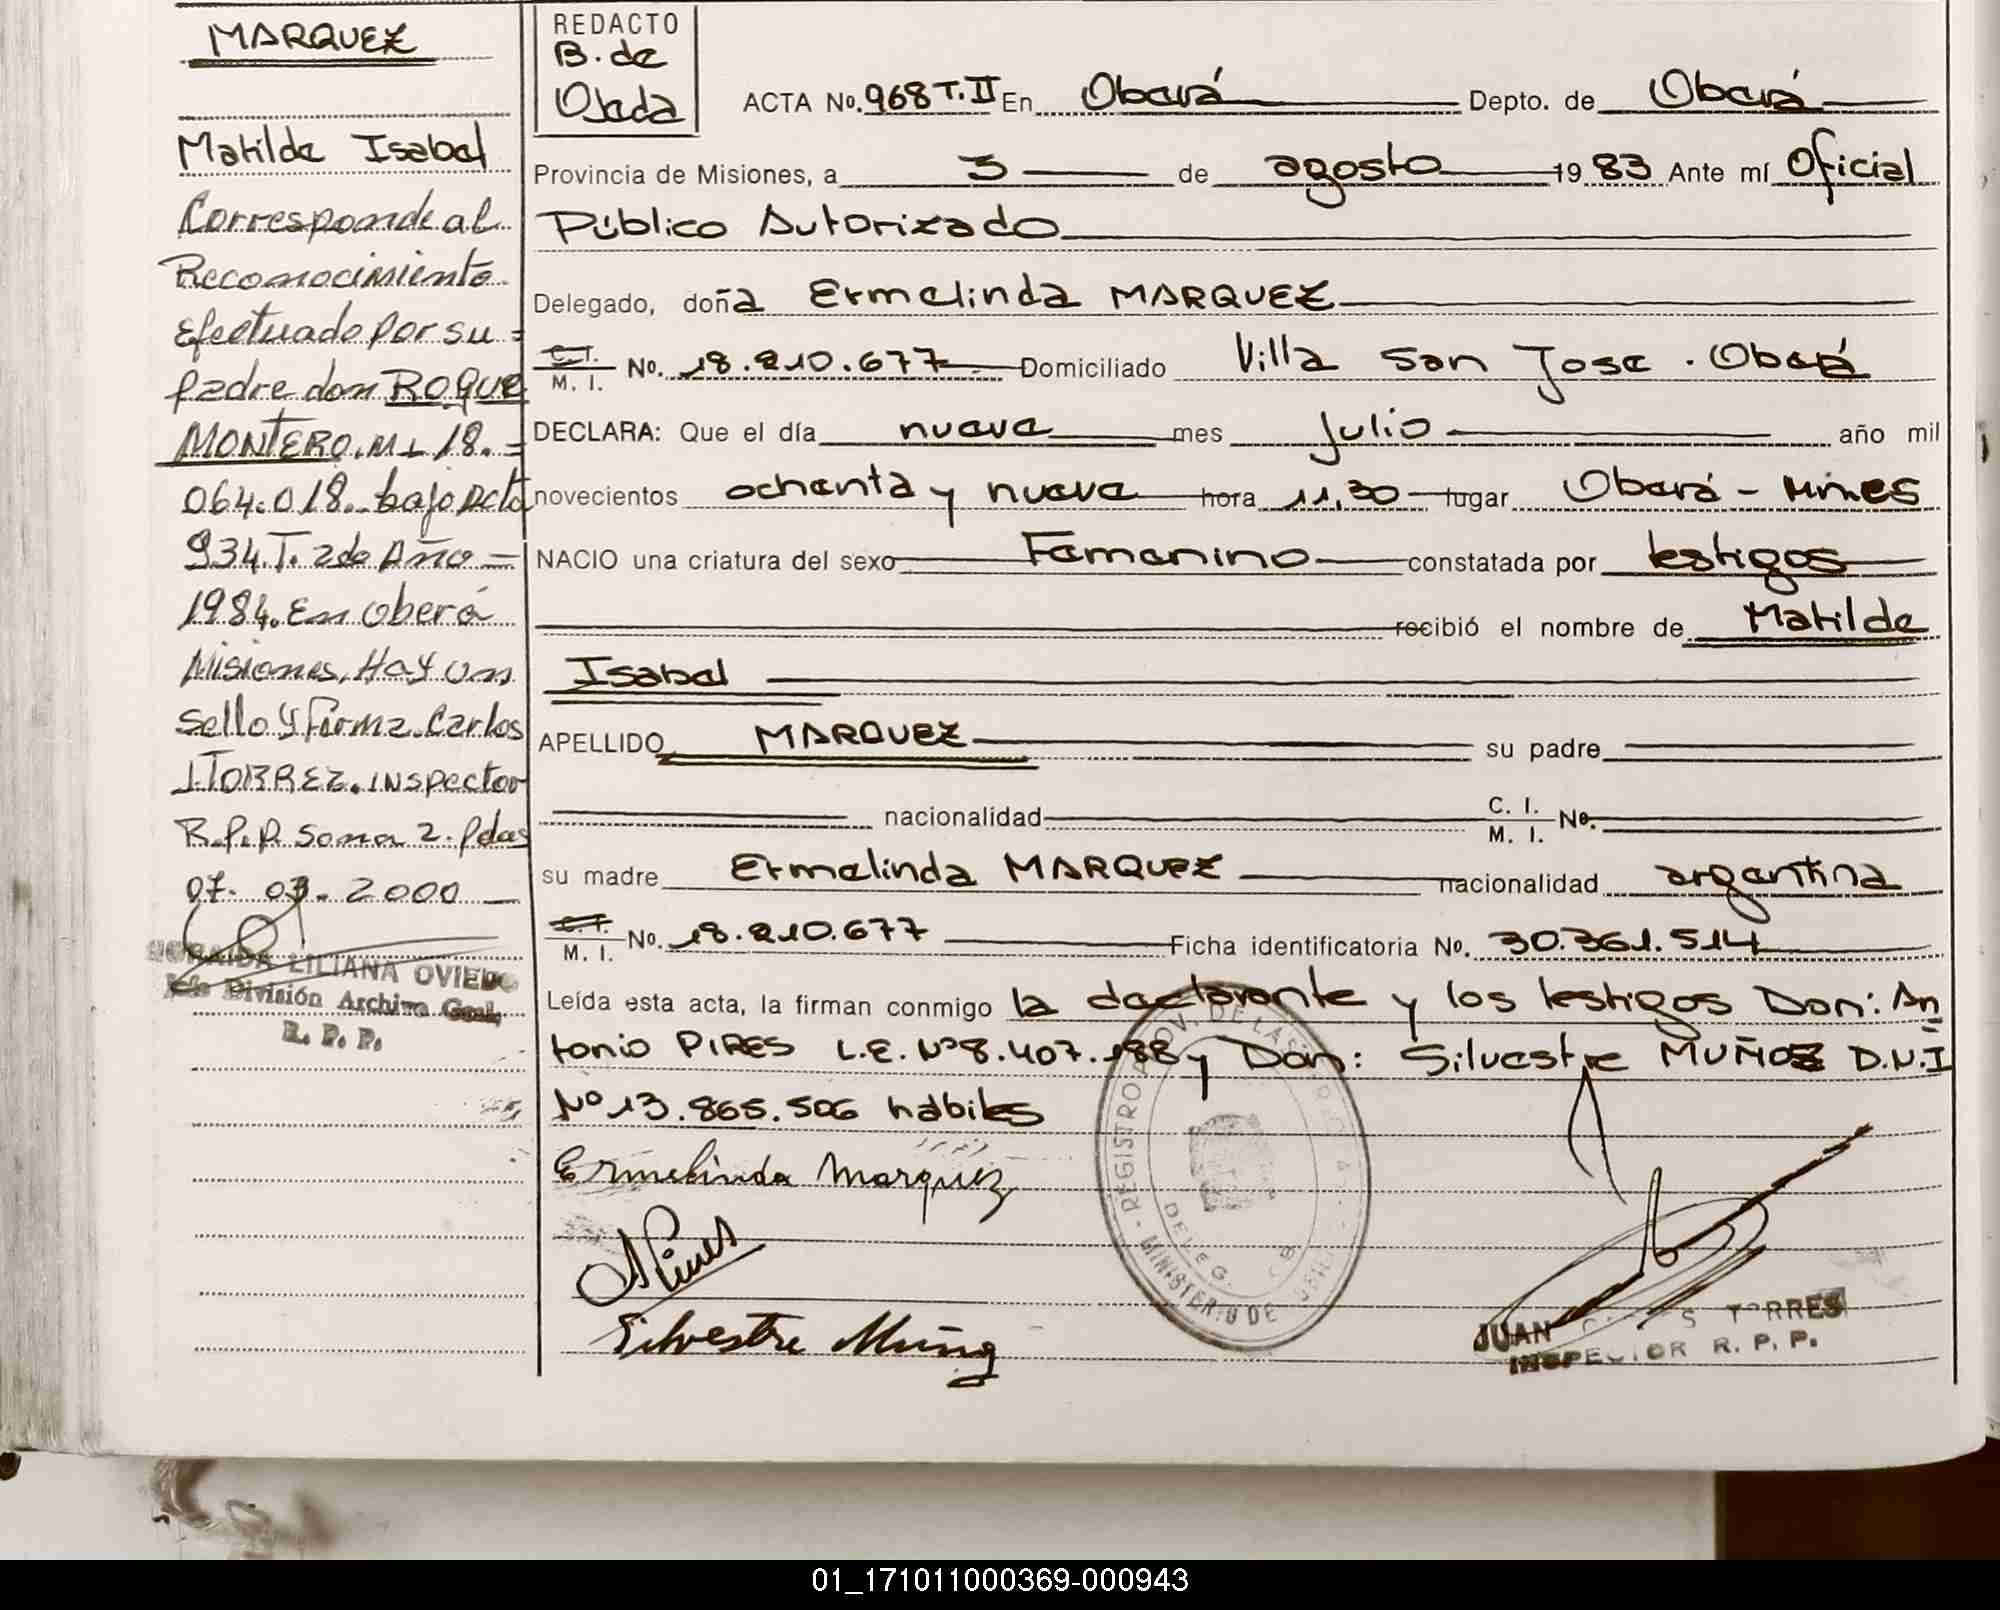 MARQUEZ
Matilde Isabel
Corresponde al
Reconocimiento
Efectuado por su =
padre don ROQUE
MONTERO. M I 18. =
064.018. bajo Acta
934. T. 2 de Año =
1984. En oberá
Misiones. Hay un
sello y firma. Carlos
J. TORREZ. INSpector
R.P.P. Sona 2. Pdas
07. 03. 2000
LILIANA OVIEDO
División Archivo Gral.
R. P. P.
REDACTO
B. de
Ojeda
ACTA No. 968 T. II En Oberá Depto. de Oberá
Provincia de Misiones, a 3 de agosto 19 83 Ante mí Oficial
Público Autorizado
Delegado, doña Ermelinda MARQUEZ
C. I. / M. I. No. 18.210.677 Domiciliado Villa San Jose . Oberá
DECLARA: Que el día nueve mes julio año mil
novecientos ochenta y nueve hora 11,30 lugar Oberá - Mnes
NACIO una criatura del sexo Femenino constatada por testigos
recibió el nombre de Matilde
Isabel
APELLIDO MARQUEZ su padre
nacionalidad C. I. / M. I. No.
su madre Ermelinda MARQUEZ nacionalidad argentina
C. I. / M. I. No. 18.210.677 Ficha identificatoria No. 30.361.514
Leída esta acta, la firman conmigo la declarante y los testigos Don: An
tonio PIRES L.E. Nº 8.407.188 y Don: Silvestre MUÑOZ D.N.I
Nº 13.865.506 hábiles
Ermelinda Marquez
A Pires
Silvestre Muñoz
REGISTRO PROV. DE LAS
DELEG.
MINISTERIO DE
JUAN TORRES
INSPECTOR R. P. P.
01_171011000369-000943